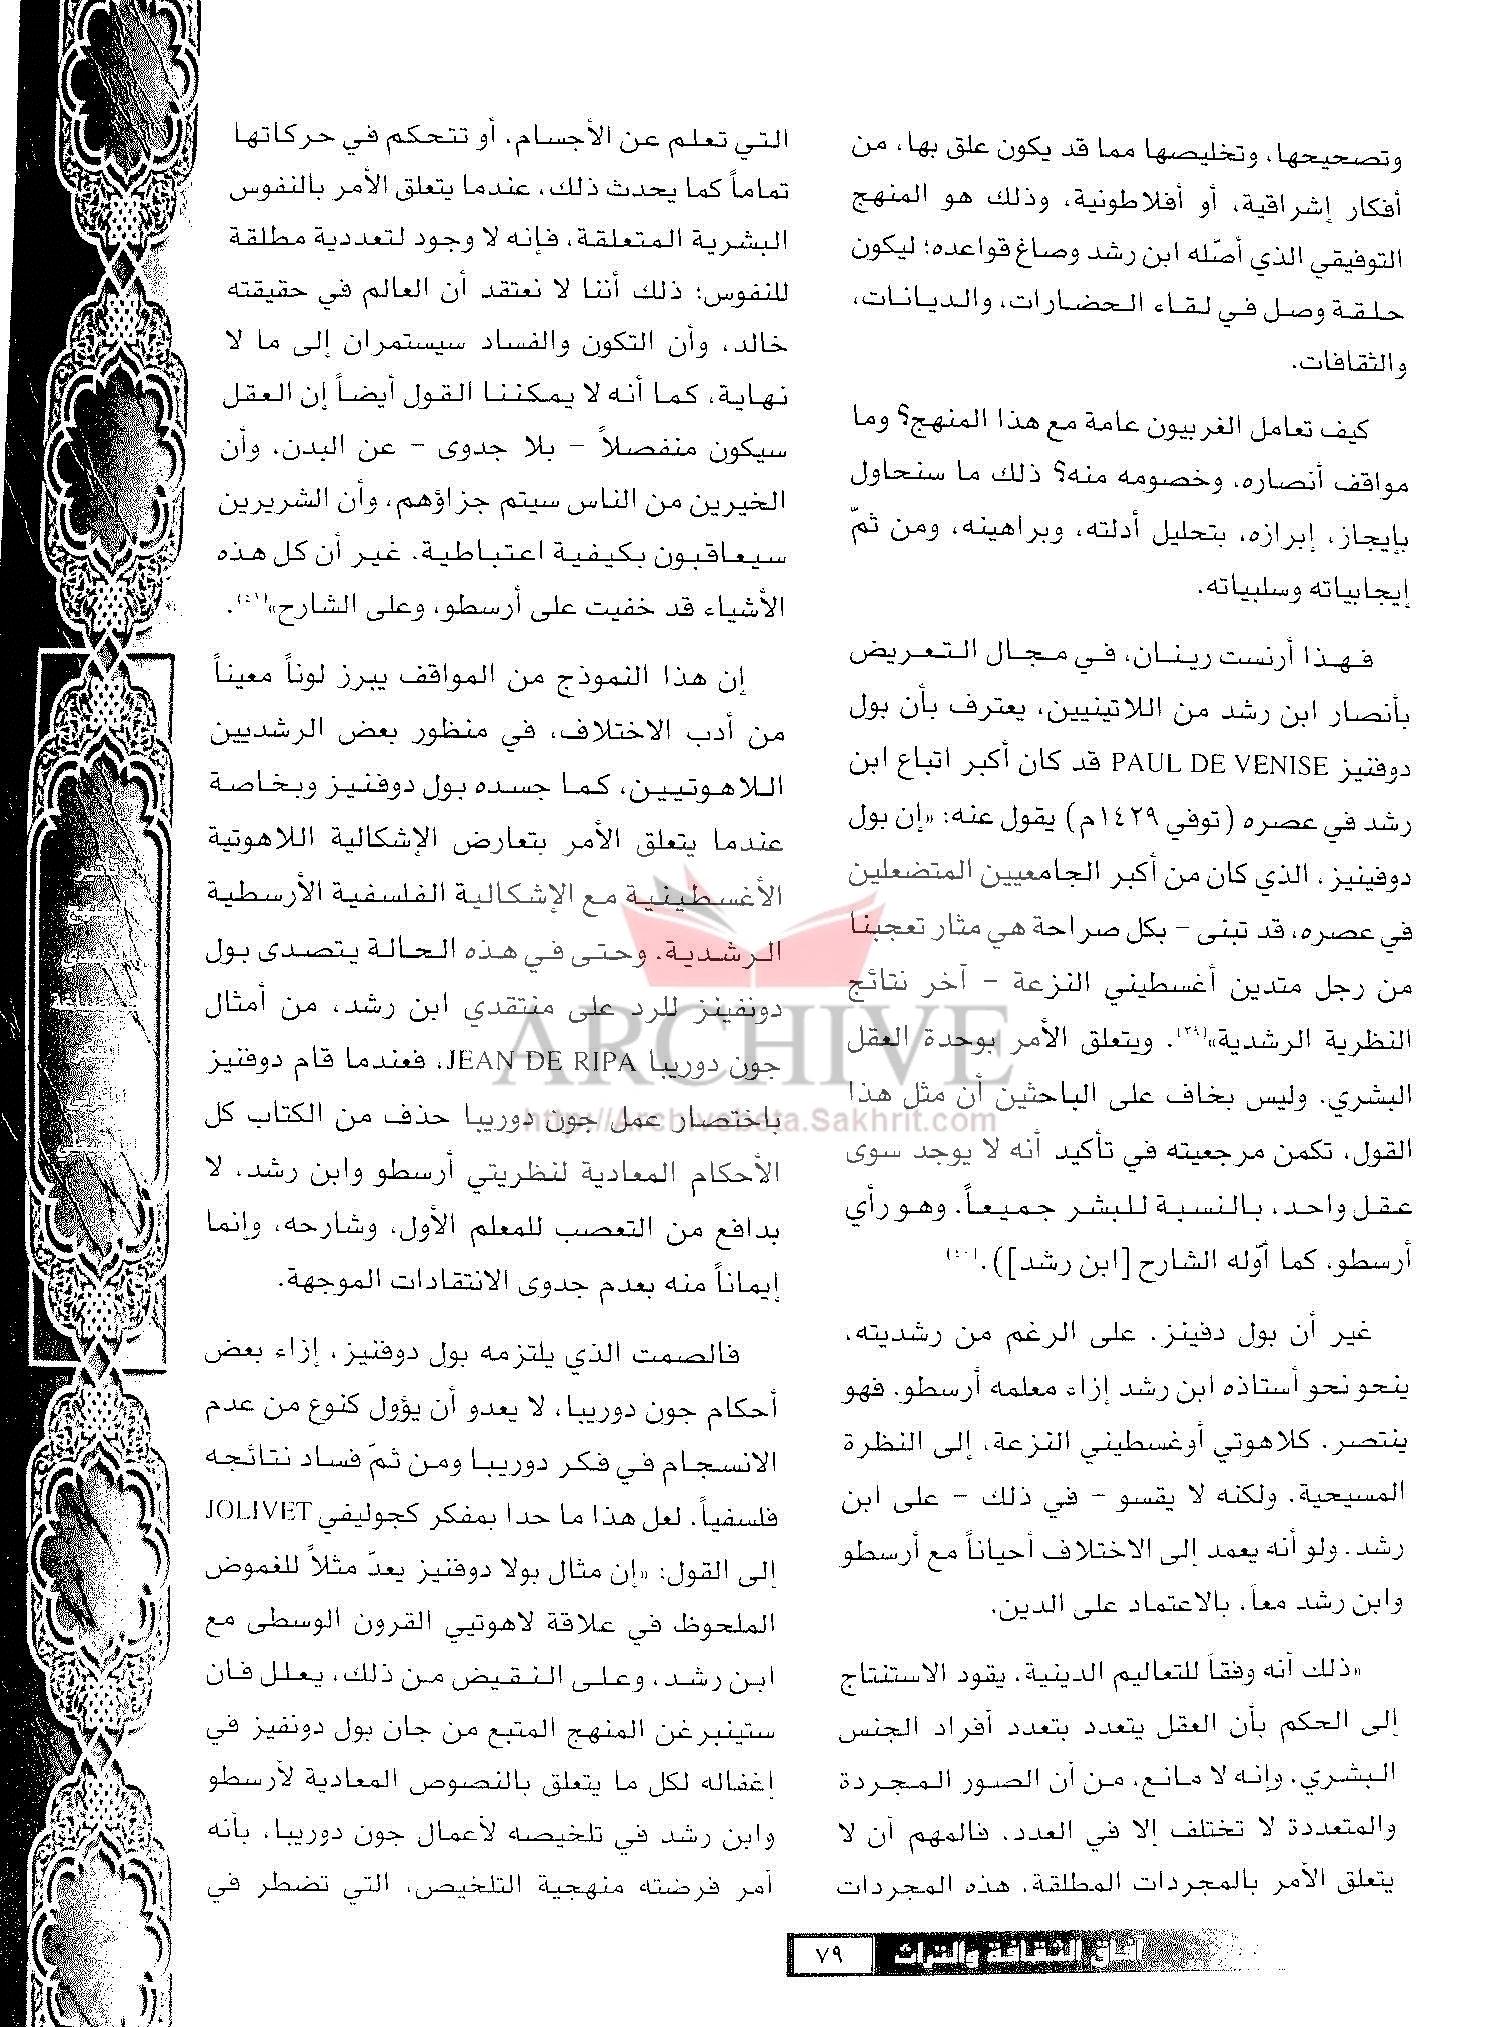 وتصحيحها، وتخليصها مما قد يكون علق بها، من
أفكار إشراقية، أو أفلاطونية، وذلك هو المنهج
التوفيقي الذي أصّله ابن رشد وصاغ قواعده؛ ليكون
حلقة وصل في لقاء الحضارات، والديانات،
والثقافات.
كيف تعامل الغربيون عامة مع هذا المنهج؟ وما
مواقف أنصاره، وخصومه منه؟ ذلك ما سنحاول
بإيجاز، إبرازه، بتحليل أدلته، وبراهينه، ومن ثمّ
إيجابياته وسلبياته.
فهذا أرنست رينان، في مجال التعريض
بأنصار ابن رشد من اللاتينيين، يعترف بأن بول
دوفنيز PAUL DE VENISE قد كان أكبر اتباع ابن
رشد في عصره (توفي ١٤٢٩م) يقول عنه: «إن بول
دوفينيز، الذي كان من أكبر الجامعيين المتضعلين
في عصره، قد تبنى - بكل صراحة هي مثار تعجبنا
من رجل متدين أغسطيني النزعة - آخر نتائج
النظرية الرشدية»(٣٩). ويتعلق الأمر بوحدة العقل
البشري. وليس بخاف على الباحثين أن مثل هذا
القول، تكمن مرجعيته في تأكيد أنه لا يوجد سوى
عقل واحد، بالنسبة للبشر جميعاً. وهو رأي
أرسطو، كما أوّله الشارح [ابن رشد]).(٤٠)
غير أن بول دفينز، على الرغم من رشديته،
ينحو نحو أستاذه ابن رشد إزاء معلمه أرسطو. فهو
ينتصر، كلاهوتي أوغسطيني النزعة، إلى النظرة
المسيحية، ولكنه لا يقسو - في ذلك - على ابن
رشد. ولو أنه يعمد إلى الاختلاف أحياناً مع أرسطو
وابن رشد معاً، بالاعتماد على الدين.
«ذلك أنه وفقاً للتعاليم الدينية، يقود الاستنتاج
إلى الحكم بأن العقل يتعدد بتعدد أفراد الجنس
البشري، وإنه لا مانع، من أن الصور المجردة
والمتعددة لا تختلف إلا في العدد، فالمهم أن لا
يتعلق الأمر بالمجردات المطلقة، هذه المجردات
التي تعلم عن الأجسام، أو تتحكم في حركاتها
تماماً كما يحدث ذلك، عندما يتعلق الأمر بالنفوس
البشرية المتعلقة، فإنه لا وجود لتعددية مطلقة
للنفوس؛ ذلك أننا لا نعتقد أن العالم في حقيقته
خالد، وأن التكون والفساد سيستمران إلى ما لا
نهاية، كما أنه لا يمكننا القول أيضاً إن العقل
سيكون منفصلاً - بلا جدوى - عن البدن، وأن
الخيرين من الناس سيتم جزاؤهم، وأن الشريرين
سيعاقبون بكيفية اعتباطية. غير أن كل هذه
الأشياء قد خفيت على أرسطو، وعلى الشارح»(٤١).
إن هذا النموذج من المواقف يبرز لوناً معيناً
من أدب الاختلاف، في منظور بعض الرشديين
اللاهوتيين، كما جسده بول دوفنيز وبخاصة
عندما يتعلق الأمر بتعارض الإشكالية اللاهوتية
الأغسطينية مع الإشكالية الفلسفية الأرسطية
الرشدية. وحتى في هذه الحالة يتصدى بول
دونفينز للرد على منتقدي ابن رشد، من أمثال
جون دوريبا JEAN DE RIPA، فعندما قام دوفنيز
باختصار عمل جون دوريبا حذف من الكتاب كل
الأحكام المعادية لنظريتي أرسطو وابن رشد، لا
بدافع من التعصب للمعلم الأول، وشارحه، وإنما
إيماناً منه بعدم جدوى الانتقادات الموجهة.
فالصمت الذي يلتزمه بول دوفنيز، إزاء بعض
أحكام جون دوريبا، لا يعدو أن يؤول كنوع من عدم
الانسجام في فكر دوريبا ومن ثمّ فساد نتائجه
فلسفياً. لعل هذا ما حدا بمفكر كجوليفي JOLIVET
إلى القول: «إن مثال بولا دوفنيز يعدّ مثلاً للغموض
الملحوظ في علاقة لاهوتيي القرون الوسطى مع
ابن رشد، وعلى النقيض من ذلك، يعلل فان
ستينبرغن المنهج المتبع من جان بول دونفيز في
إغفاله لكل ما يتعلق بالنصوص المعادية لأرسطو
وابن رشد في تلخيصه لأعمال جون دوريبا، بأنه
أمر فرضته منهجية التلخيص، التي تضطر في
ARCHIVE
http://Archivebeta.Sakhrit.com
آفاق الثقافة والتراث
٧٩